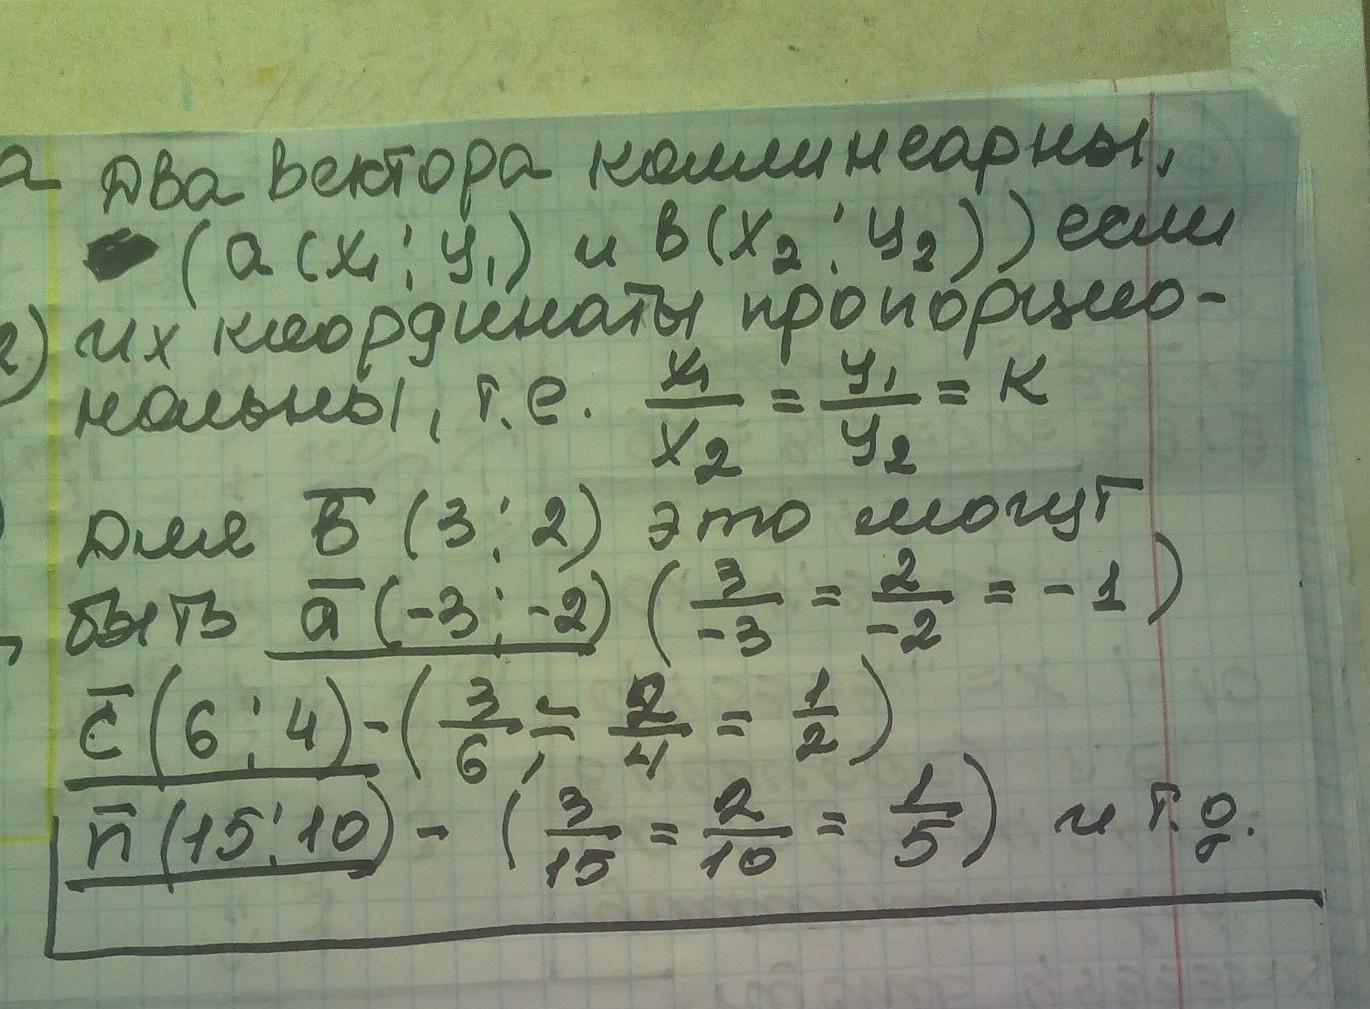 Два вектора коллинеарны,
(a (x₁; y₁) и в(x₂; y₂)) если
их координаты пропорцио-
нальны, т.е. x₁/x₂ = y₁/y₂ = к
Для в̅ (3; 2) это могут
быть a̅ (-3; -2) (3/-3 = 2/-2 = -1)
c̅ (6; 4) - (3/6 = 2/4 = 1/2)
n̅ (15; 10) - (3/15 = 2/10 = 1/5) и т.д.